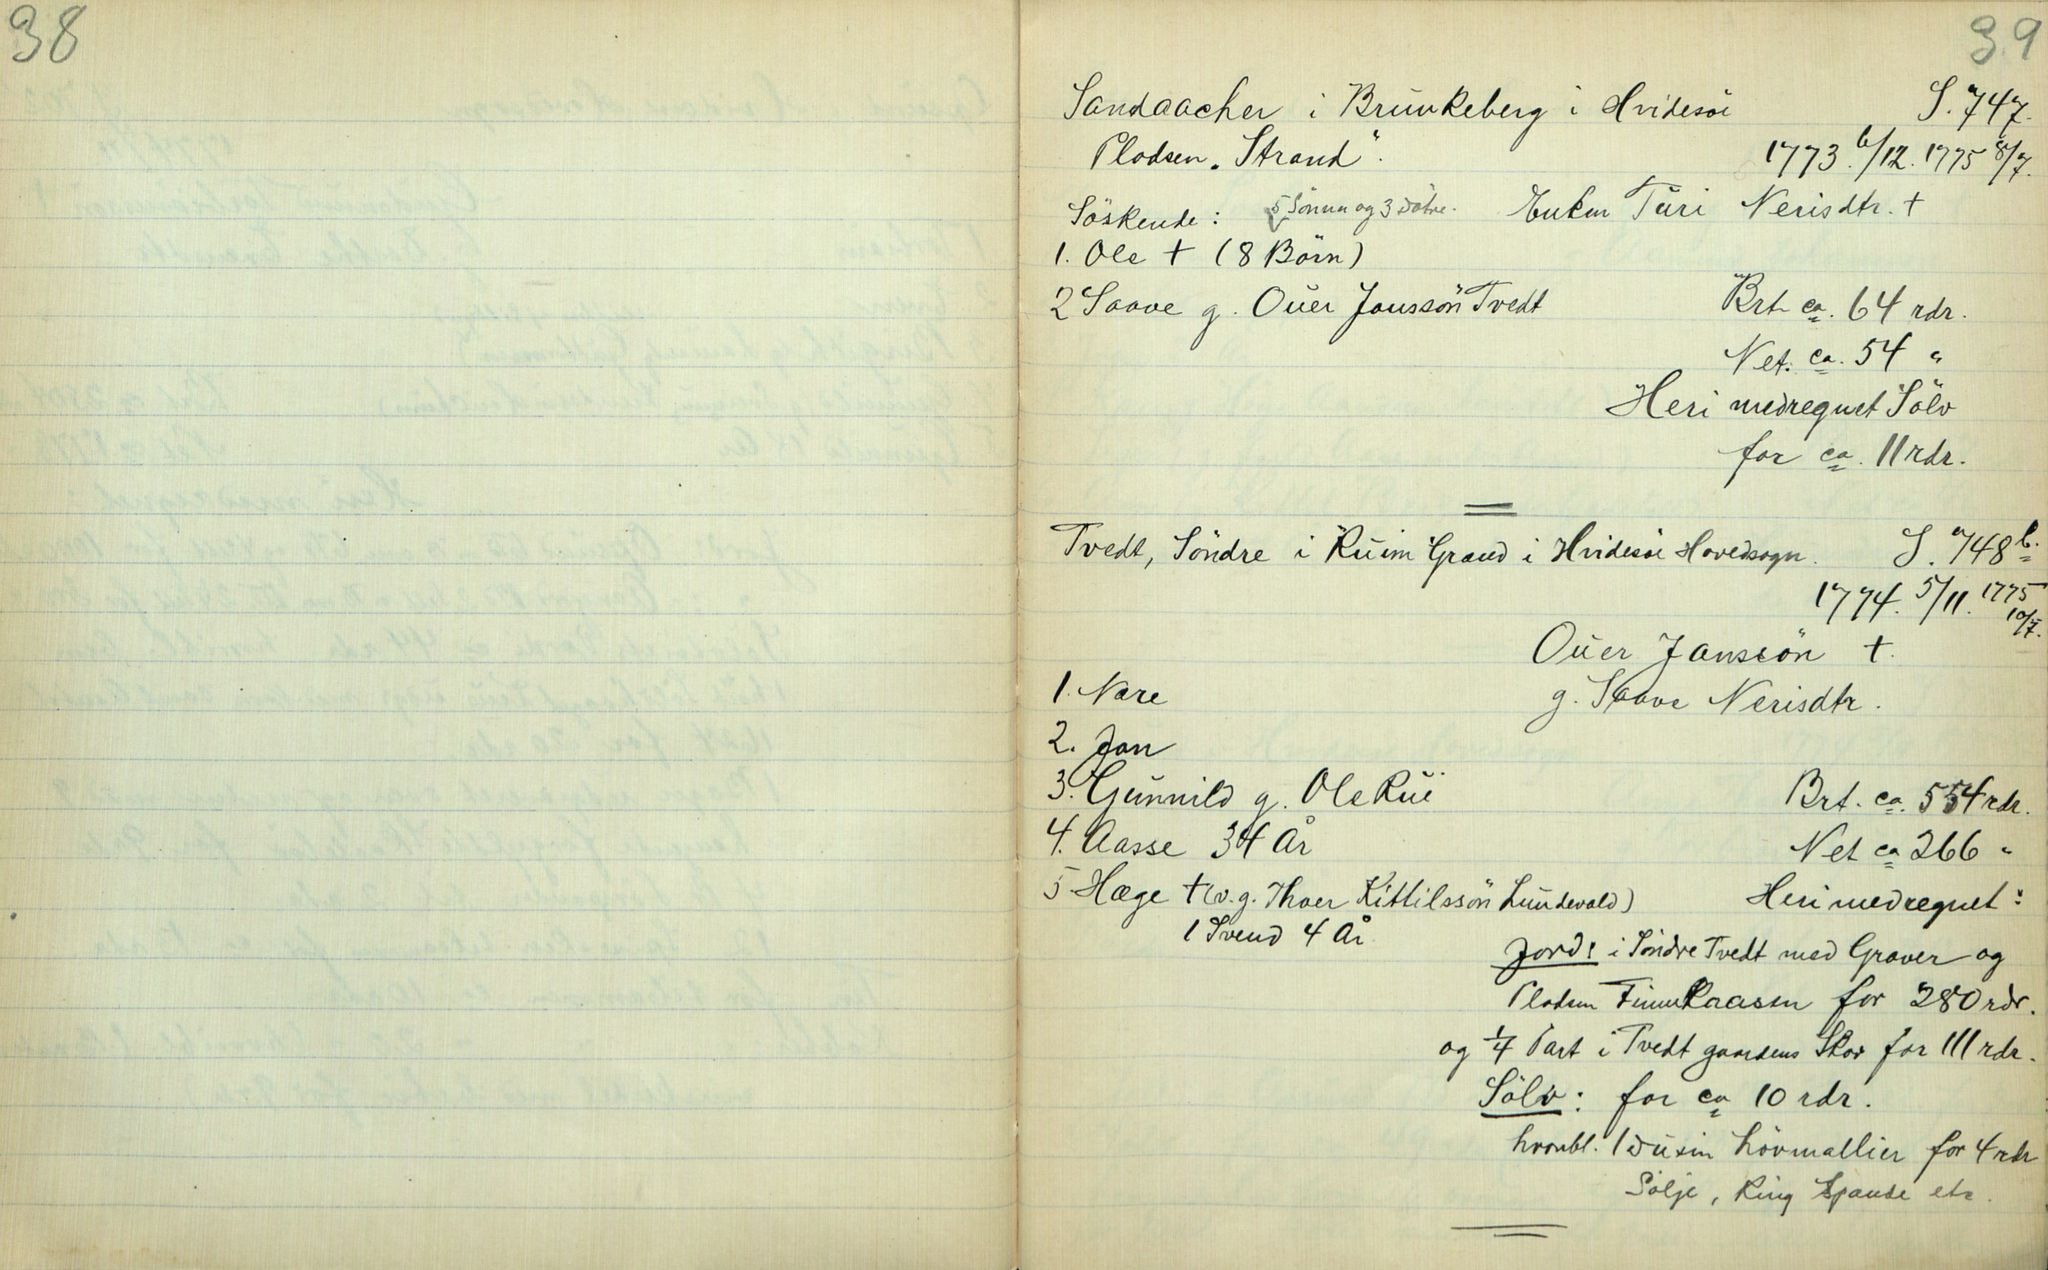 38
39
Sandaacher i Brunkeberg i Hvidesöe S. 747.
Pladsen "Strand". 1773. 6/12. 1775 8/7.
Söskende: 5 Sönner og 3 Døtre. Enken Turi Nerisdtr. †
1. Ole † (8 Börn)
2 Saave g. Ouer Janssön Tvedt Brt ca. 64 rdr.
Net. ca. 54 "
Heri medregnet Sölv
for ca. 11 rdr.
Tvedt, Söndre i Ruim Grand i Hvidesöe Hovedsogn. S. 748 b.
1774. 5/11. 1775 10/7.
Ouer Janssön †.
1. Nare g. Saave Nerisdtr.
2. Jan
3. Gunnild g. Ole Rue Brt. ca. 554 rdr.
4. Aasse 34 År Net ca 266 "
5 Hæge † (v. g. Thoer Kittilssön Lundevald) Heri medregnet:
1 Svend 4 År.
Jord: i Söndre Tvedt med Graver og
Pladsen Finnkaasen for 280 rdr.
og 1/4 Part i Tvedt gaardens Skov for 111 rdr.
Sölv: for ca 10 rdr.
hvoribl. 1 Dusin Lövmallier for 4 rdr
Sölje, Ring Spande etc.